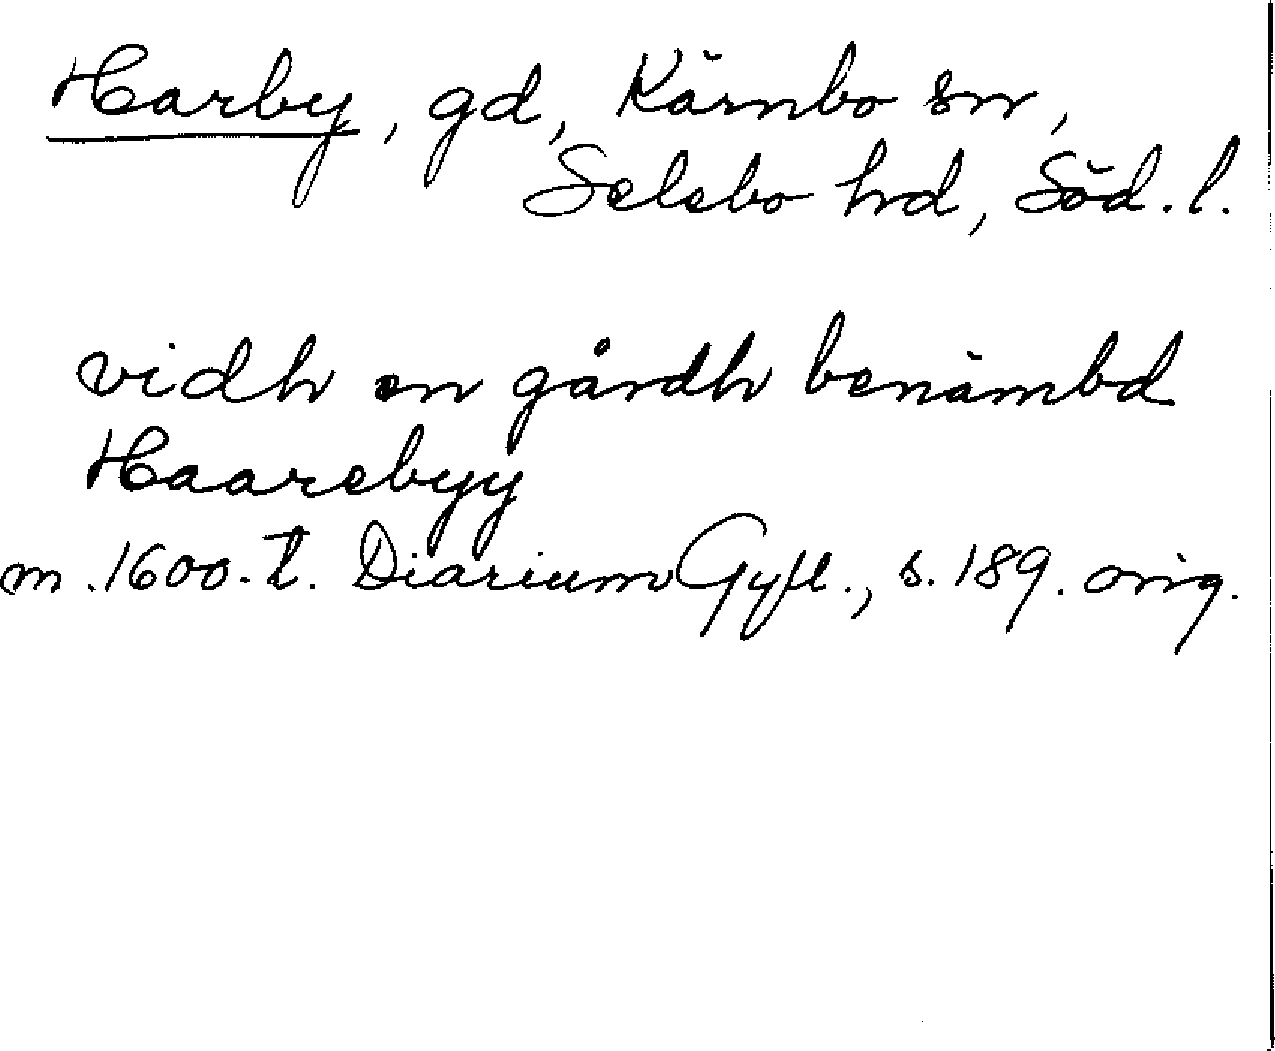 Harby, gd, Kärnbo sn,
Selebo hd, Söd. l.
vidh en gårdh benämbd
Haarebyy
m. 1600-t. Diarium Gyll., s. 189. orig.